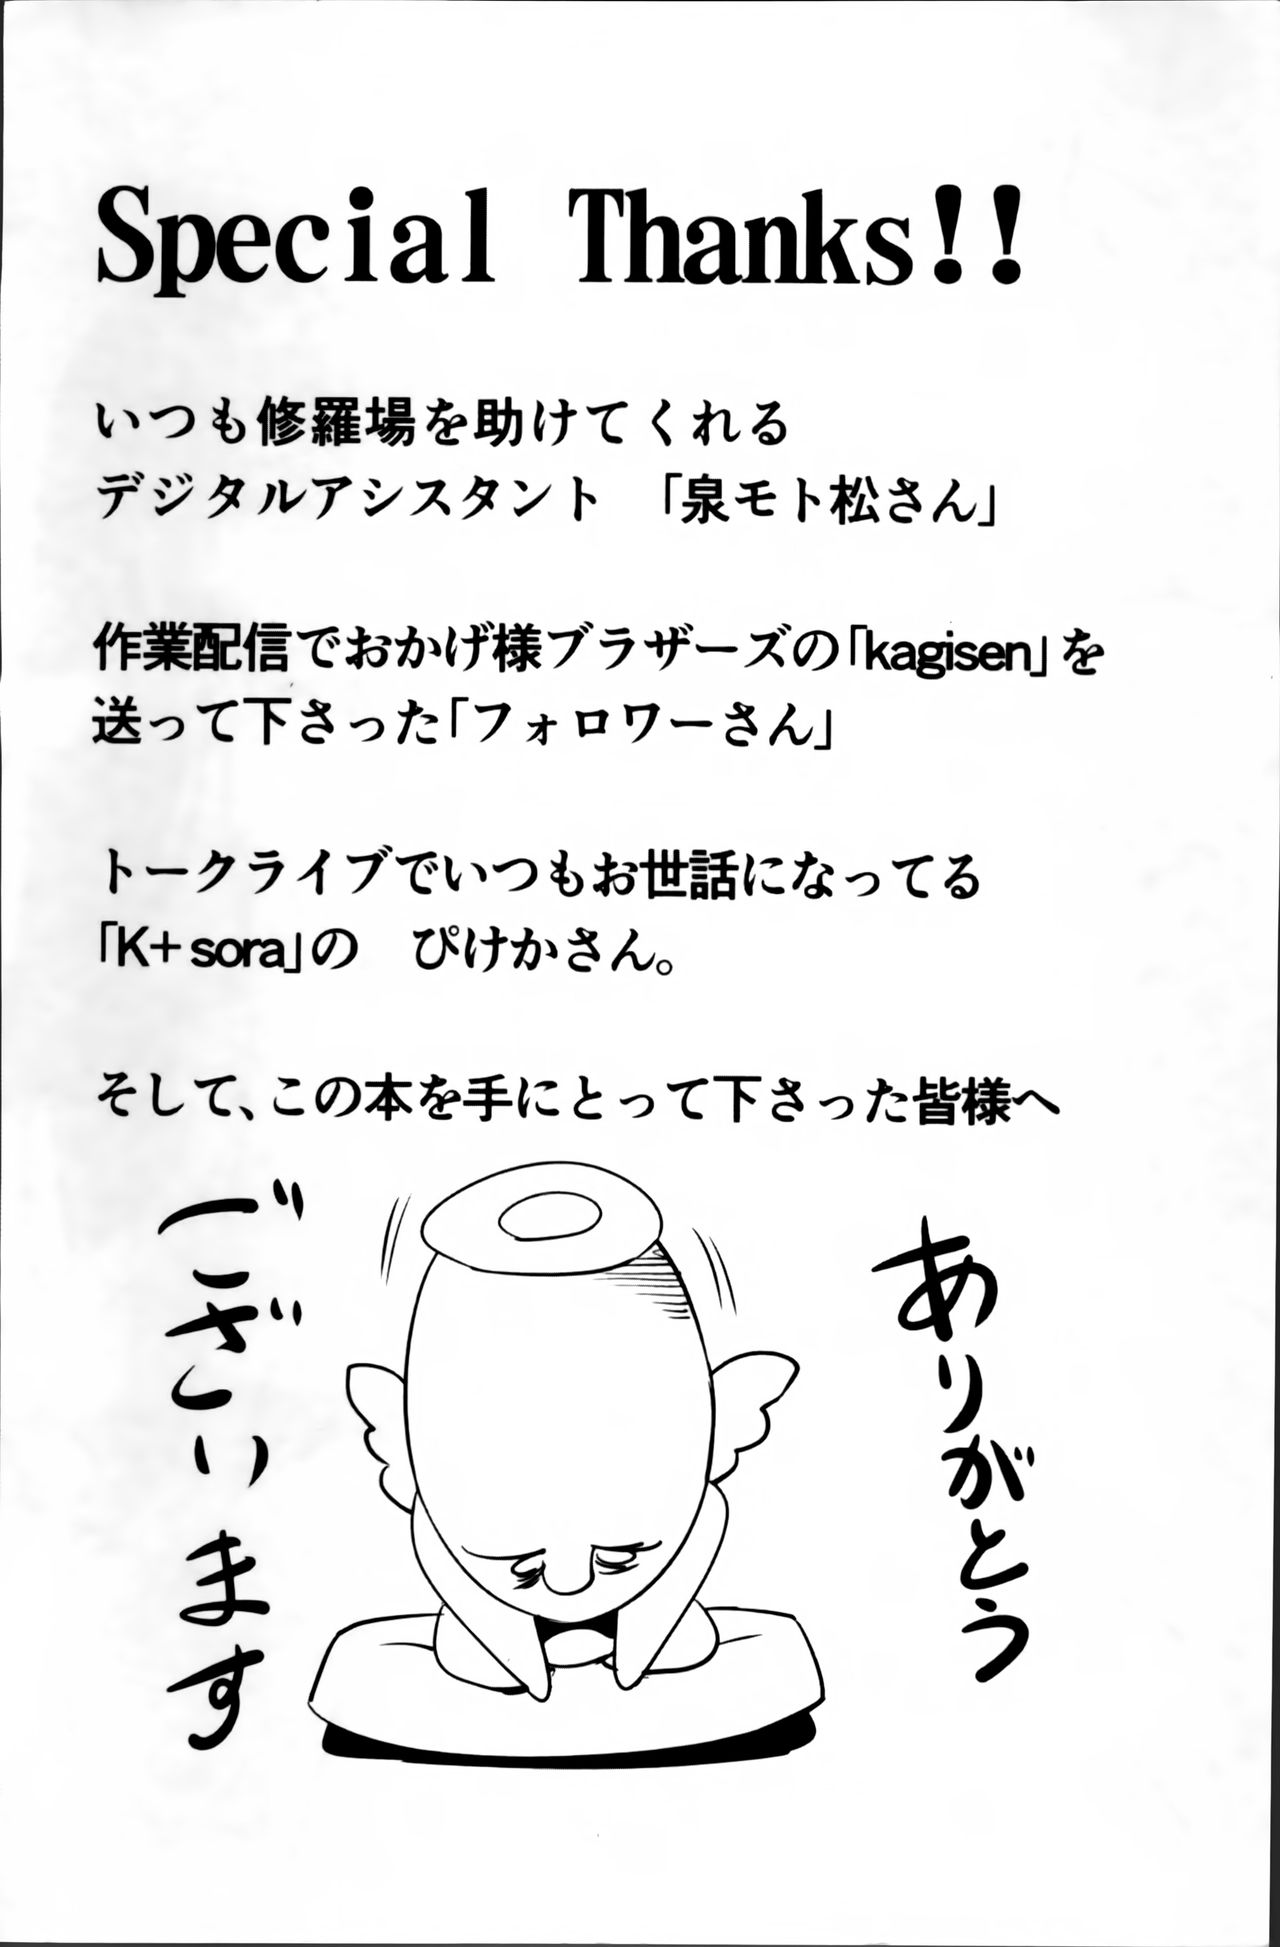 Special Thanks!!
いつも修羅場を助けてくれる
デジタルアシスタント 「泉モト松さん」
作業配信でおかげ様ブラザーズの「kagisen」を
送って下さった「フォロワーさん」
トークライブでいつもお世話になってる
「K+sora」の ぴけかさん。
そして、この本を手にとって下さった皆様へ
ありがとう
ございます